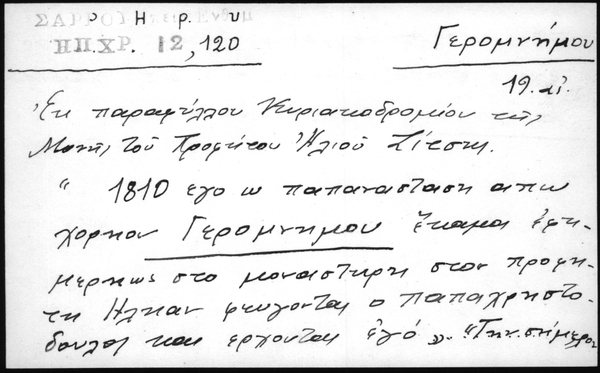 Ἠ.Π.Χ.
ΗΠ.ΧΡ. 12, 120
Γερομνήμου
19. αἰ.
Ἐκ παραφύλλου Κυριακοδρομίου τῆς
Μονῆς τοῦ Προφήτου Ἠλιού Σίτσης.
" 1810 εγο ω παπαναστασι απω
χορηον Γερομνημου ἔκαμα ἐφη-
μερηως στο μοναστηρη στον προφη-
τη Ηληαν φευγοντας ο παπαχρηστο-
δουλος και ερχονται ἐγό ".